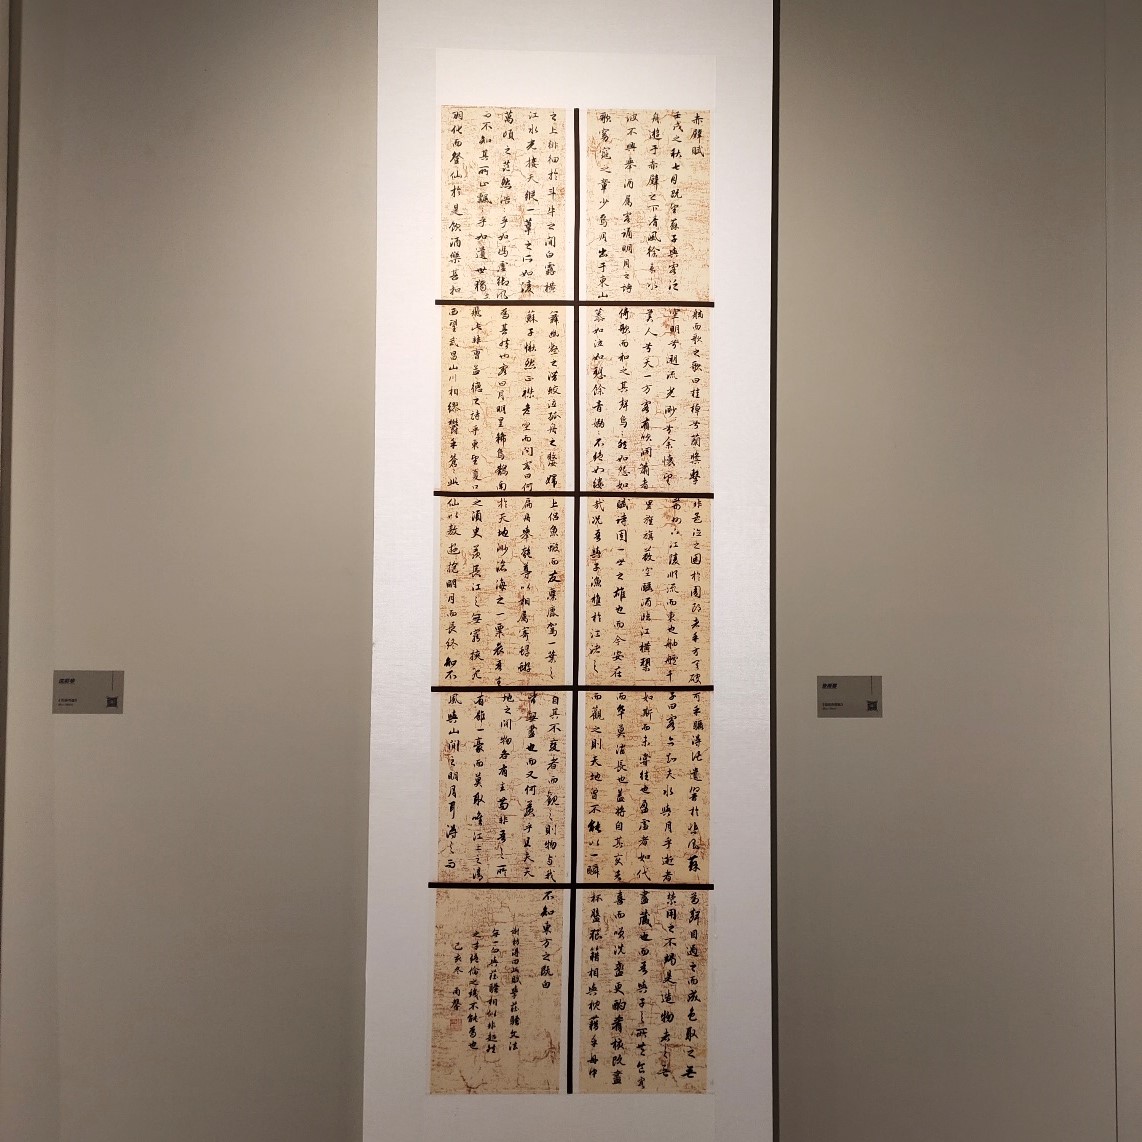 赤壁賦
壬戌之秋七月既望蘇子與客泛
舟遊于赤壁之下清風徐來水
波不興舉酒属客誦明月之詩
歌窈窕之章少焉月出于東山
之上徘徊於斗牛之間白露橫
江水光接天縱一葦之所如淩
萬頃之茫然浩々乎如馮虛御風
而不知其所止飄々乎如遺世獨立
羽化而登仙於是飲酒樂甚扣
舷而歌之歌曰桂棹兮蘭槳擊
空明兮溯流光渺々兮余懷望
美人兮天一方客有吹洞簫者
倚歌而和之其聲嗚々然如怨如
慕如泣如訴餘音嫋々不絕如縷
舞幽壑之潛蛟泣孤舟之嫠婦
蘇子愀然正襟危坐而問客曰何
為其然也客曰月明星稀烏鵲南
飛此非曹孟德之詩乎東望夏口
西望武昌山川相繆鬱乎蒼々此
非孟德之困於周郎者乎方其破
荊州下江陵順流而東也舳艫千
里旌旗蔽空釃酒臨江橫槊
賦詩固一世之雄也而今安在
哉况吾與子漁樵於江渚之
上侶魚蝦而友麋鹿駕一葉之
扁舟舉匏尊以相属寄蜉蝣
於天地渺滄海之一粟哀吾生
之須臾羨長江之無窮挾飛
仙以遨遊抱明月而長終知不
可乎驟得托遺響於悲風蘇
子曰客亦知夫水與月乎逝者
如斯而未嘗往也盈虛者如代
而卒莫消長也蓋將自其變者
而觀之則天地曾不能以一瞬
自其不變者而觀之則物与我
皆無盡也而又何羨乎且夫天
地之間物各有主苟非吾之所
有雖一毫而莫取唯江上之清
風與山間之明月耳得之而
為聲目遇之而成色取之無
禁用之不竭是造物者之無
盡藏也而吾與子之所共食客
喜而笑洗盞更酌肴核既盡
杯盤狼籍相與枕藉乎舟中
不知東方之既白
謝枋得曰此賦學莊騷文法
無一句與莊騷相似非超然
之才絕倫之識不能為也
己亥冬 南